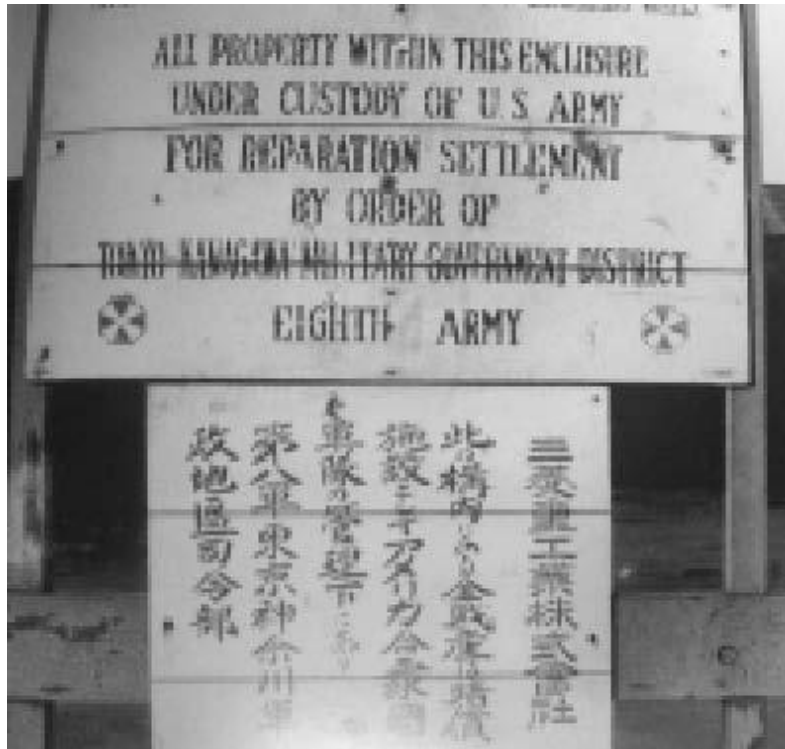 ALL PROPERTY WITHIN THIS ENCLOSURE
UNDER CUSTODY OF U.S. ARMY
FOR REPARATION SETTLEMENT
BY ORDER OF
TOKYO KANAGAWA MILITARY GOVERNMENT DISTRICT
EIGHTH ARMY
三菱重工業株式會社
此ノ構内ニアル全財産ハ賠償
施設ニシテアメリカ合衆國
軍隊ノ管理下ニアリ
第八軍東京神奈川軍
政地區司令部